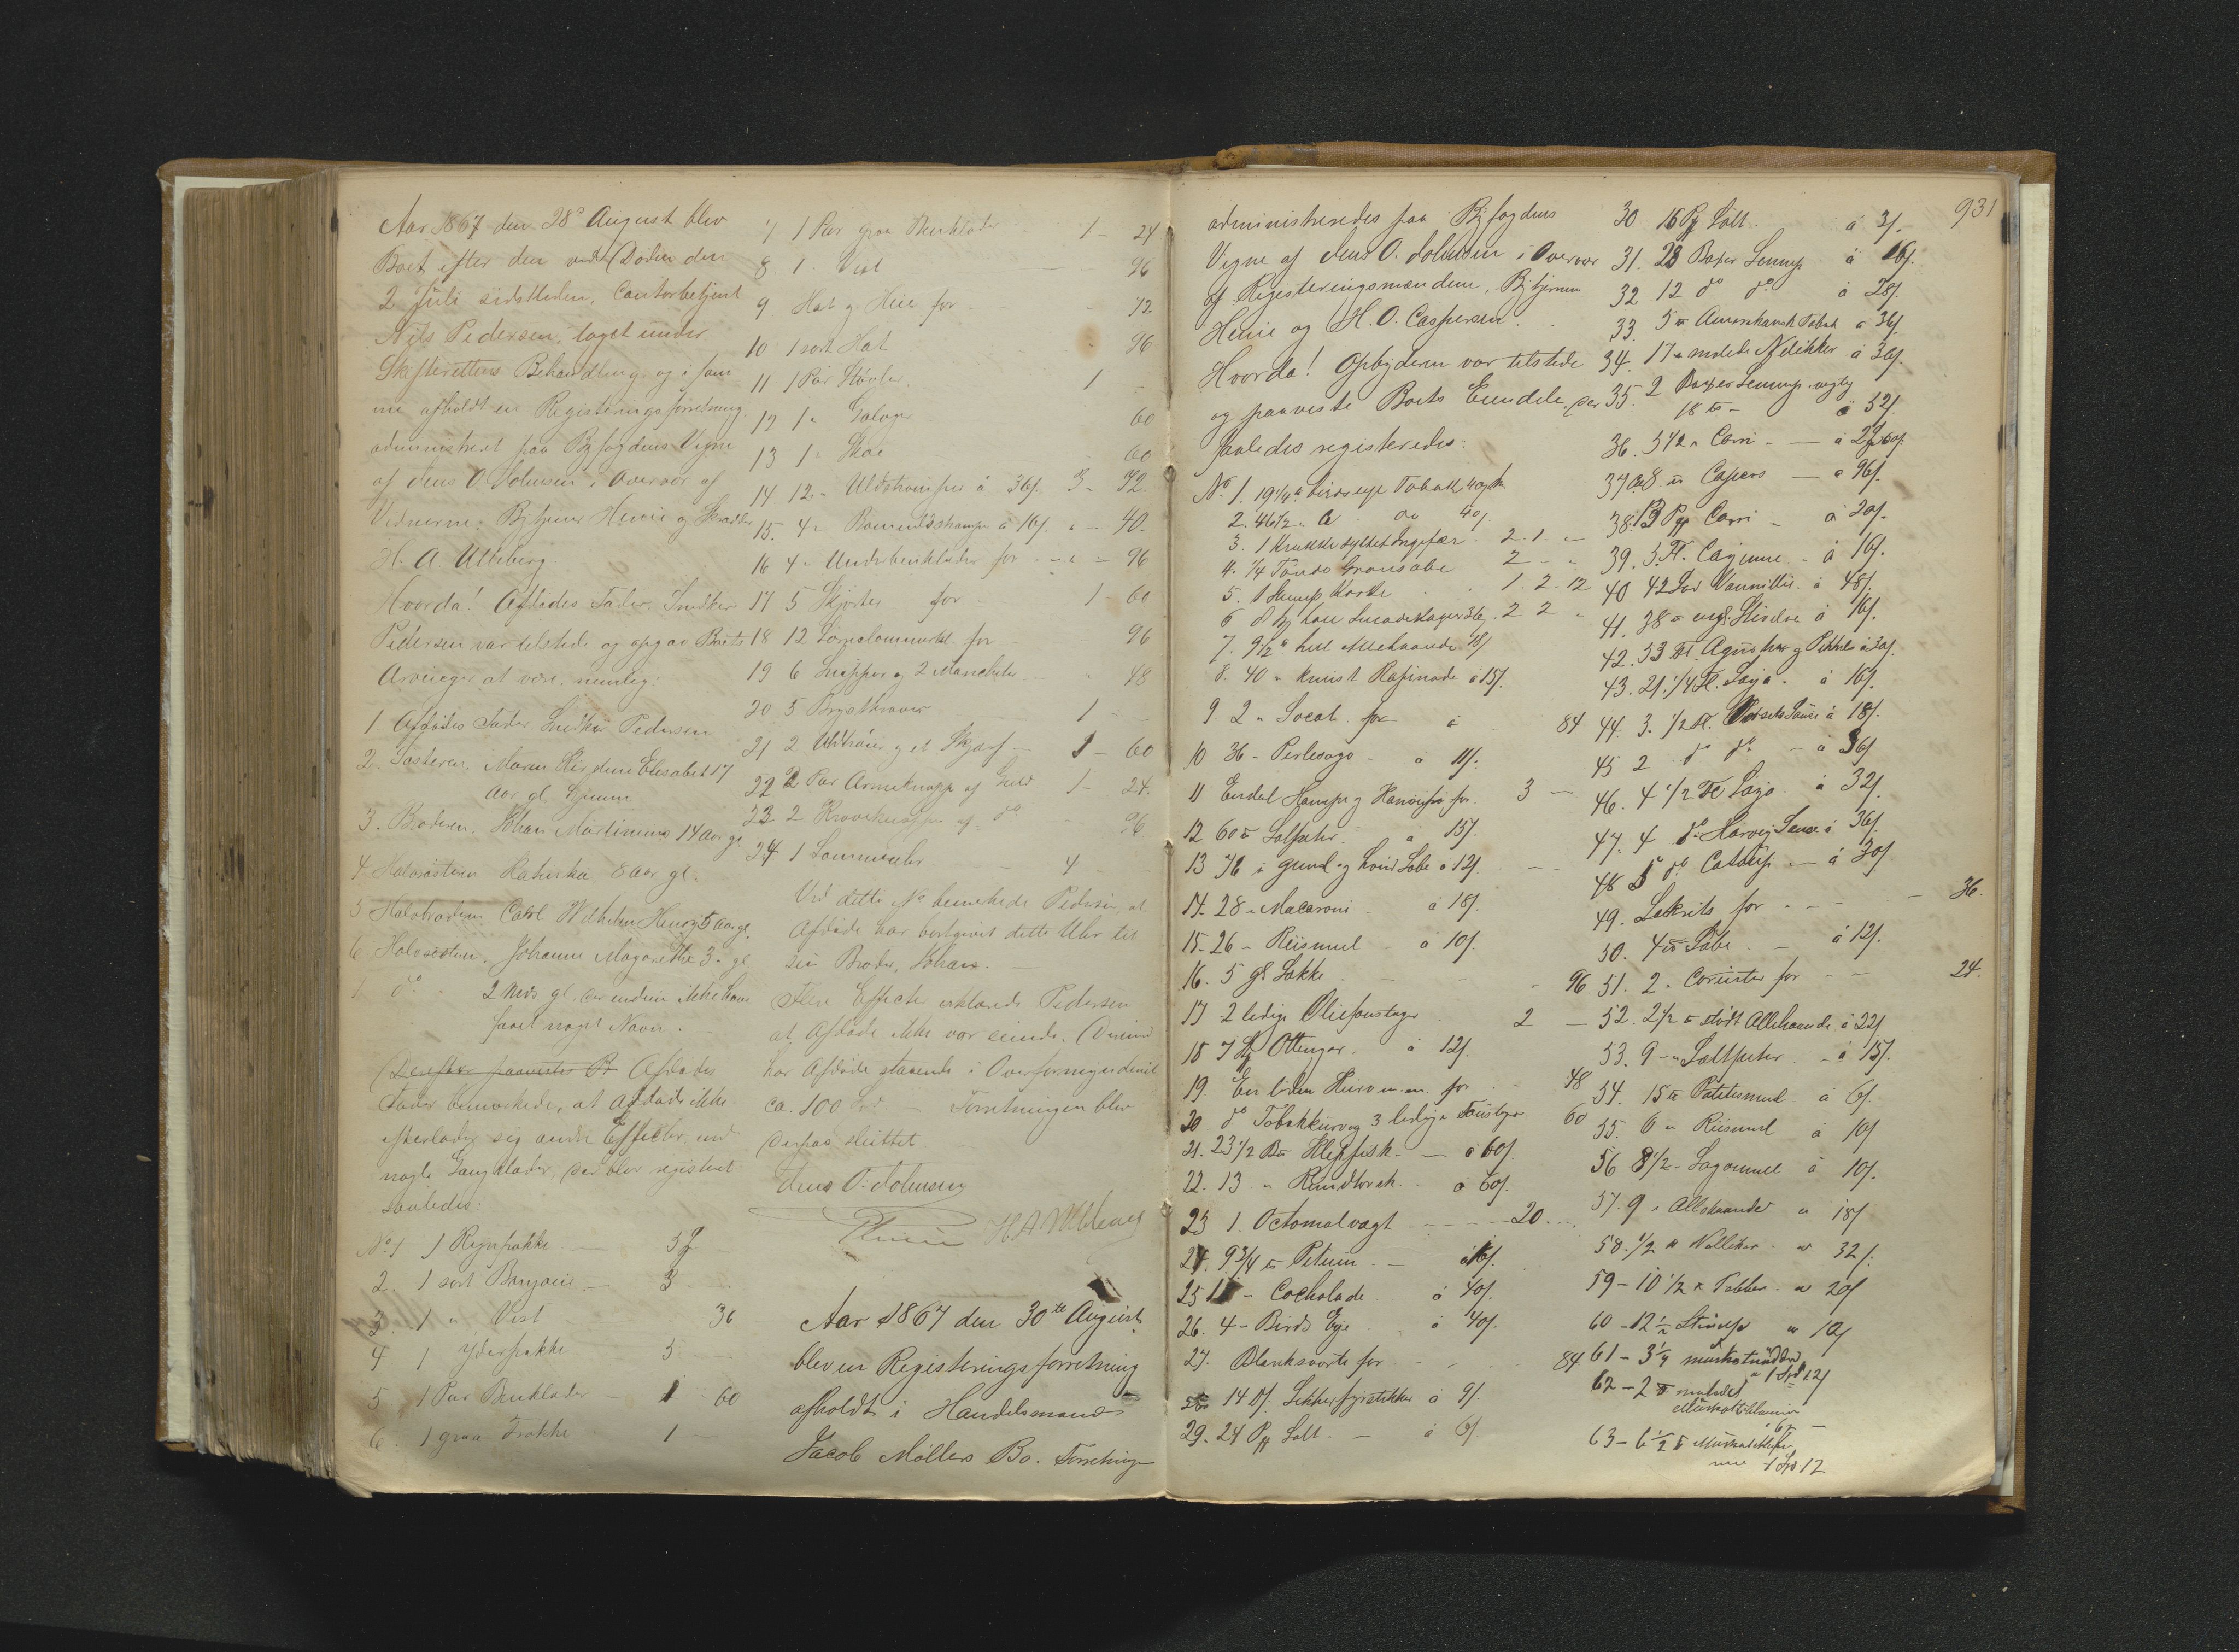 Aar 1867 den 28de August blev
Boet efter den ved Døden den
2 Juli sidstleden, Contorbetjent
Nils Pedersen, taget under
Skifterettens Behandling og i sam
me afholdt en Registeringsforretning,
administreret paa Byfogdens Vegne
af Jens O. Johnsen i Overvær af
Vidnerne, Bytjener Heuie og
H. A Ulleberg.
Hvorda! Afdødes Fader, Snedker
Pedersen var tilstede og opgav Boets
Arvinger at være, nemlig:
1. Afdødes Fader, Snedker Pedersen
2. Søsteren, Maren Elisabet 17
Aar gl. hjemme
3. Broderen, Johan Martinius 14 Aar gl
4 Halvsøsteren 8 aar gl.
5 Halvbroderen Carl Wilhelm Henrg 5 aar gl.
6. Halvsøsteren, Johanne Magarethe 3 " gl
7 do 2 Mdr gl, der endnu ikke have
faaet noget Navn. —
Derefter paavistes B Afdødes
Fader bemærkede, at Afdøde ikke
efterlod sig andre Effecter, end
nogle Gangklæder, der blev registreret
saaledes:
No 1 1 Regnfrakke — 5
2. 1 sort — 3 —
3. 1 " Vest 36
4 1 Yderfrakke 5 —
5 1 Par Benklæder 1 60
6. 1 graa Frakke 1 —
7 1 Par graa Benklæder 1 - 24
8. 1 Vest 96
9 Hat og Hue for 72
10 1 sort Hat 96
11 1 Par Støvler 1 -
12 1 " Galoger 60
13 1 " Skoe 60
14 12 " Uldstrømper à 36/. 3 - 72.
15. 4 " Bomuldsstrømper à 16/. " - 40
16 4 " Underbenklæder for - " - 96
17 5 Skjorter for 1 60
18 12 Lommetørkl. for 96
19 6 Snipper og 2 Manchetter 48
20 5 Brystkraver 1 -
21 2 og et Skjærf - 1 - 60
22 2 Par Armeknapper af Guld 1 - 24.
23 2 Kraveknapper af do - 96
24. 1 Lommeuhr - 4 -
Ved dette No bemærkede Pedersen, at
Afdøde har bortgivet dette Uhr til
sin Broder, Johan. —
Flere Effecter erklærede Pedersen
at Afdøde ikke var eiende. Derimod
har Afdøde staaende i Overformynderiet
ca. 100 Spd — Forretningen blev
derpaa sluttet
Jens O. Johnsen
Heuie HAUlleberg
Aar 1867 den 30te August
blev en Registeringsforretning
afholdt i Handelsmand
Jacob Møllers Bo. Forretningen
931
administreredes paa Byfogdens
Vegne af Jens O. Johnsen i Overvær
af Registeringsmændene, Bytjener
Heuie og H. O. Caspersen.
Hvorda! Opbyderen var tilstede
og paaviste Boets Eiendele, der
saaledes registeredes:
No 1. 19 1/4 " birdseye Tobak 40/.
2. 46 1/2 " do 40/.
3. 1 Krukke syltet Ingefær 2. 1. -
4. 1/4 Tønde Grønsæbe 2 - "
5. 1 Korke 1. 2. 12
6 2 2 "
7. 9 1/2 " hel Allehaande
8. 40 " knust Rafinade à 15/.
9. 2 " Socal. for 84
10 36 - Perlesago - à 11/.
11 Endel Hampe og for 3 —
12 60 " Salpeter à 15/.
13 76 " grønd og hvid Sæbe à 12/.
14. 28 " Macaroni à 18/.
15. 26 - Riismeel - à 10/.
16. 5 gl Sække 96
17 2 ledige Oliefoustager 2 —
18 7 Otteringer. à 12/.
19. En liden for 48
20. do Tobakkurv og 3 ledige Foustager 60
21. 23 1/2 Klepfisk - — à 60/.
22. 13 " Rundtorsk - à 60/.
23 1. Octomalvægt - - - 20. -
24. 9 3/4 " Petum - à 16/.
25 - Cocholade. à 40/.
26. 4 - Birds Eye à 40/.
27. Blanksværte for 84
28 14 Sikkerfyrstikker à 9/.
29. 24 Salt. — à 6/.
30 16 Salt. à 3/.
31. 28 Boxer Sennep à 16/.
32 12 do do à 28/.
33. 5 " Amerikansk Tobak à 36/
34. 17 " malede Nellikker à 30/.
35. 2 Boxer Sennep, vægtig
18 - à 32/.
36. 5 1/2 " Carri - —
37 8 " Capers — à 96/.
38. 13 Carri - à 20/.
39. 5 Fl. Cayenne - à 16/.
40 42 Lod Vannillie à 48/.
41. 38 " Stivelse à 16/.
42. 53 Fl. Agurker og Pikkels à 30/.
43. 21. 1/4 Fl. Soja. à 16/.
44. 3. 1/2 Fl. Sauce à 18/.
45 2 do do - à 36/
46. 4 1/2 Fl Soja. à 32/.
47. 4 do Harvej Sauce à 36/.
48 5 do Catsup — à 30/
49. Lakrits for - - 36.
50. 4 Sæbe. - à 12/.
51. 2 " Corinter for - - 24.
52. 2 1/2 stødt Allehaande à 22/
53. 9 - " Saltpeter - à 15/.
54. 15 Potetesmeel à 6/.
55. 6 " Riismeel à 10/
56 8 1/2 - Sagomeel à 10/.
57. 9 " Allehaande " 18/
58. 1/2 " Nelliker " 32/.
59 - 10 1/2 " Pebber " 20/
60 - 12 1/2 Stivelse " 10/
61 - 3 1/4 muskatnødder
à 1 Spd 12/
62 - 2 malede
Muskatblomme
63 - 6 1/2
1 Spd 12